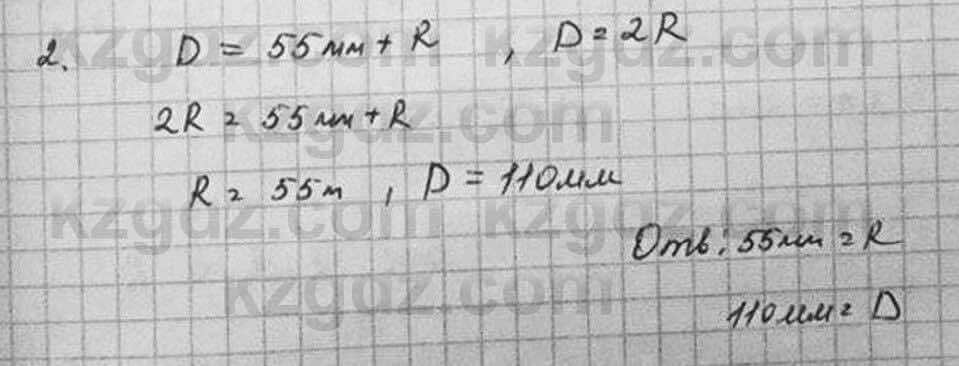 2. D = 55мм + R , D = 2R
2R = 55мм + R
R = 55м , D = 110мм
Отв: 55мм = R
110мм = D
kzgdz.com kzgdz.com
kzgdz.com
kzgdz.com kzgdz.com
kzgdz.com